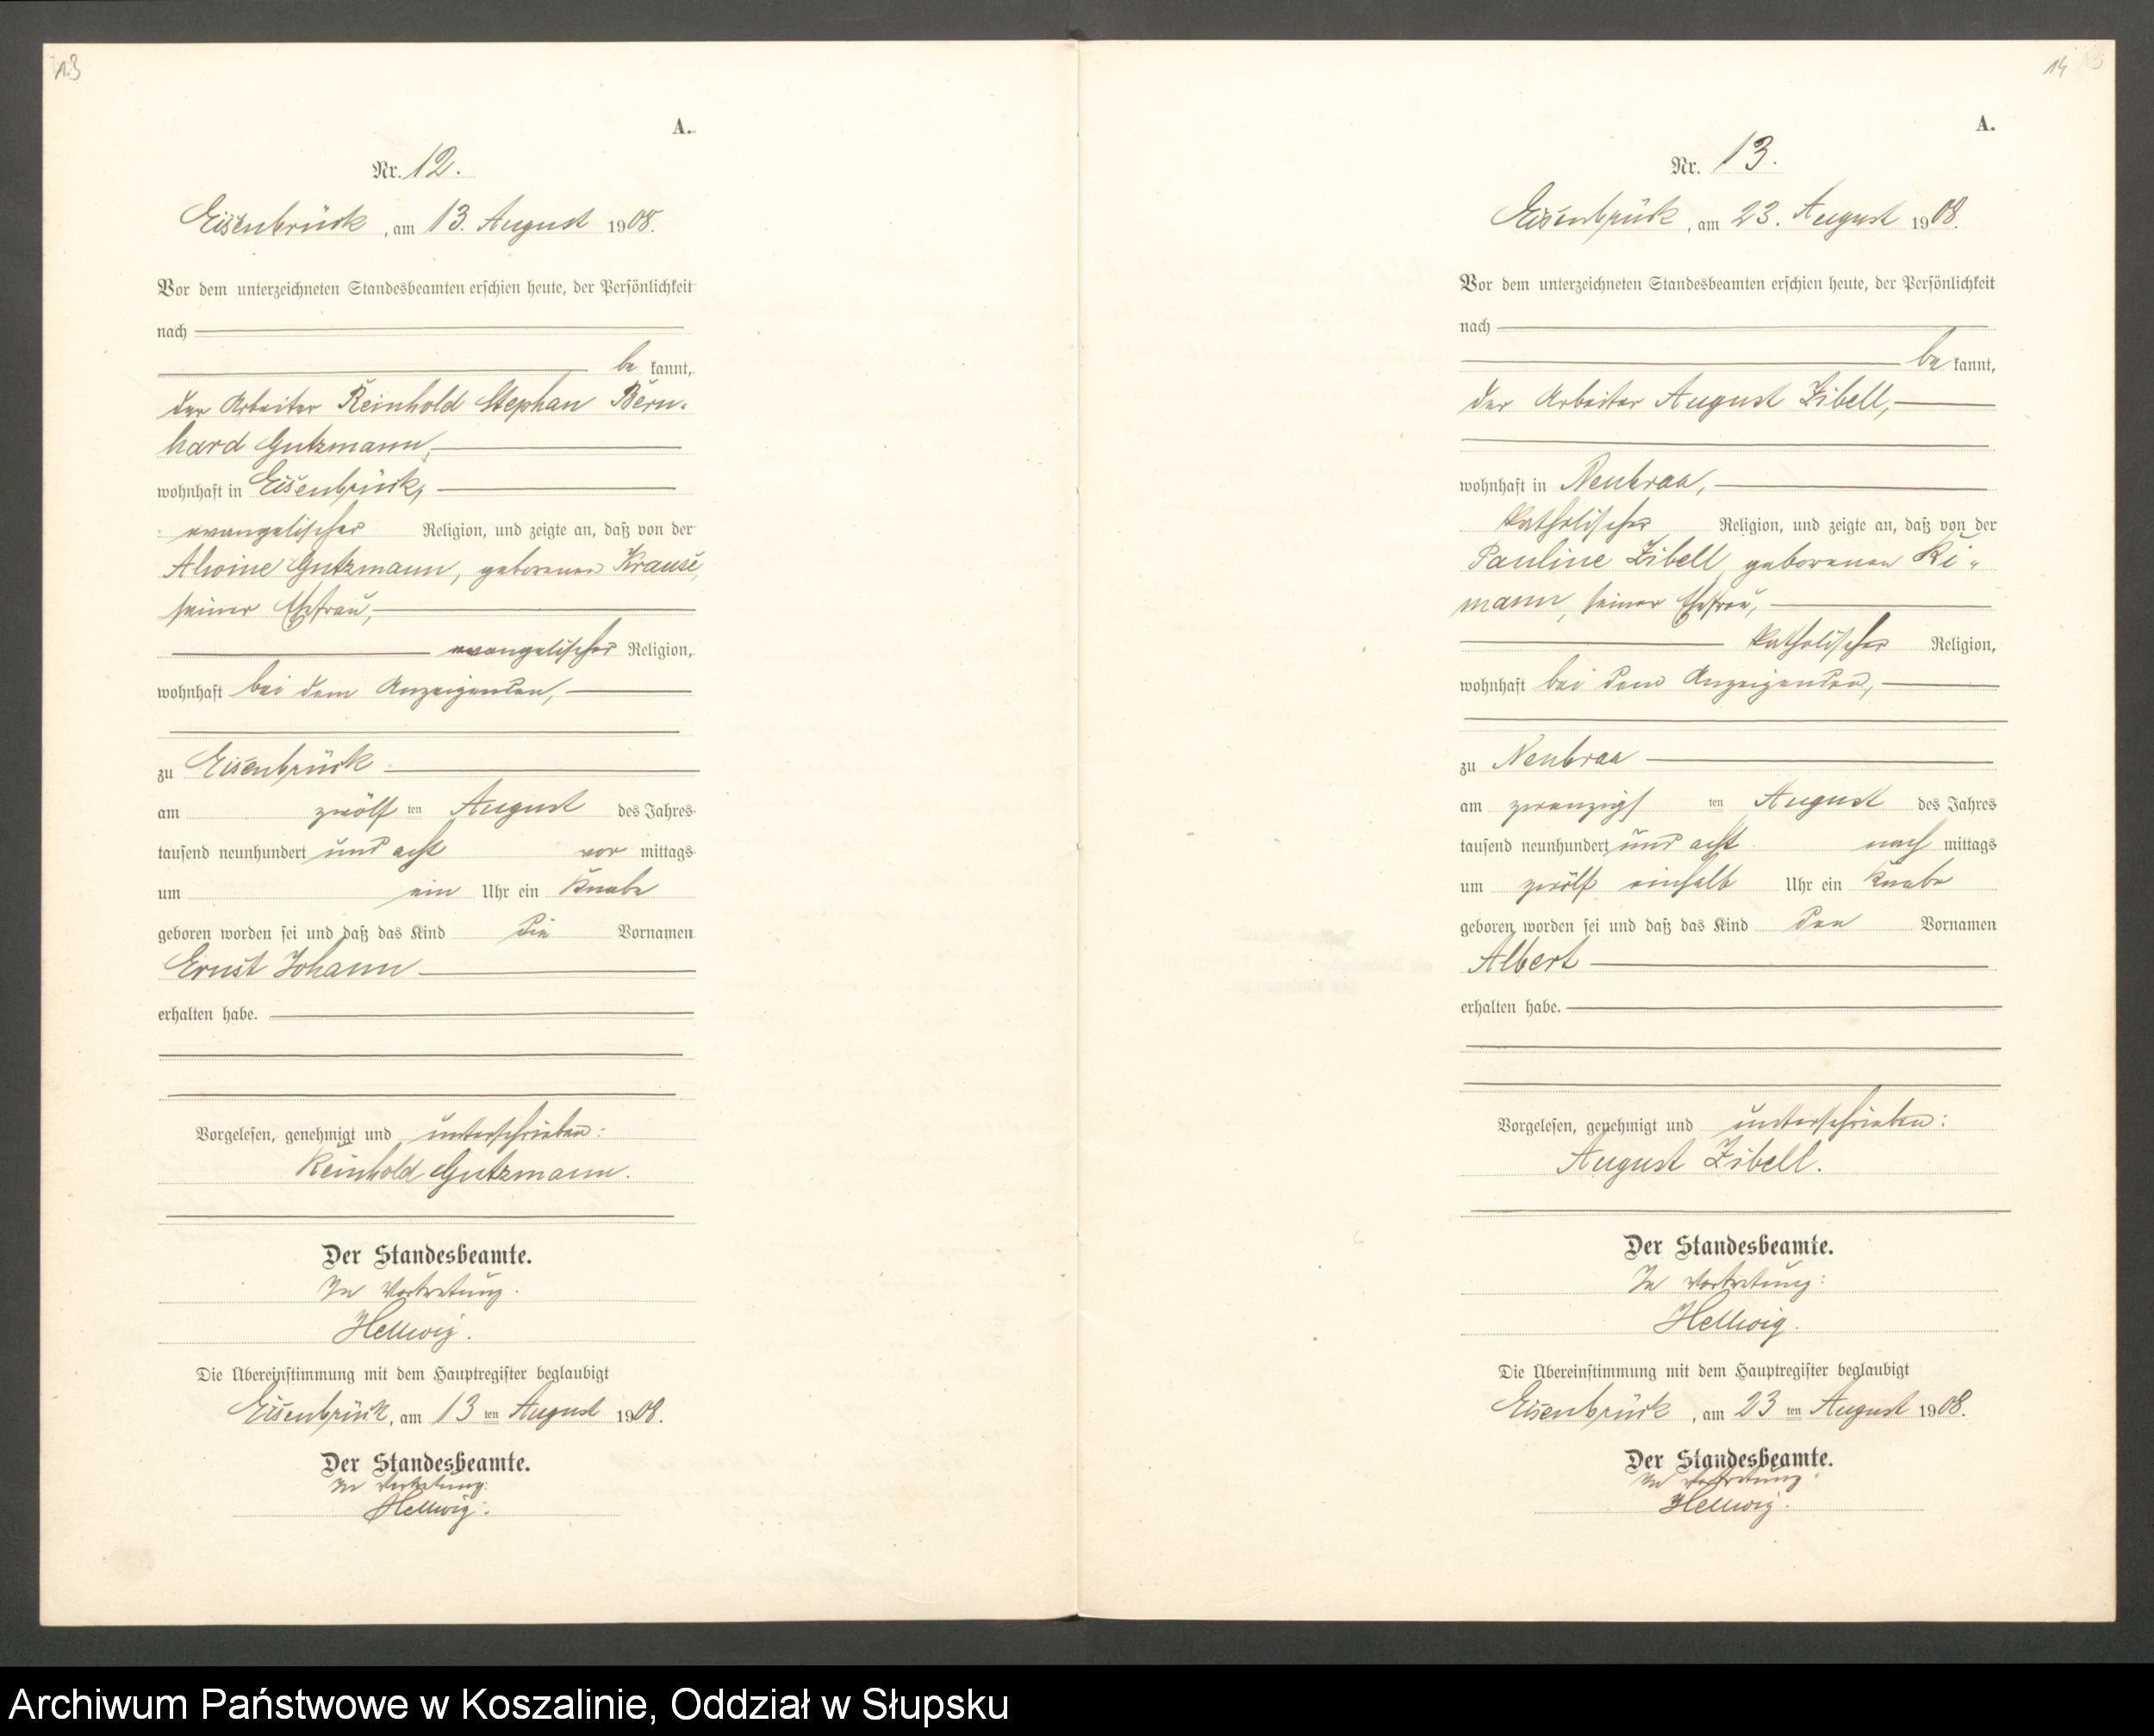 13
A.
Nr. 12.
Eisenbrück, am 13. August 1908.
Vor dem unterzeichneten Standesbeamten erschien heute, der Persönlichkeit
nach
be kannt,
der Arbeiter Reinhold Stephan Bern-
hard Gutzmann,
wohnhaft in Eisenbrück,
evangelischer Religion, und zeigte an, daß von der
Alwine Gutzmann, geborenen Krause,
seiner Ehefrau,
evangelischer Religion,
wohnhaft bei dem Anzeigenden,
zu Eisenbrück
am zwölf ten August des Jahres
tausend neunhundert und acht vor mittags
um ein Uhr ein Knabe
geboren worden sei und daß das Kind die Vornamen
Ernst Johann
erhalten habe.
Vorgelesen, genehmigt und unterschrieben:
Reinhold Gutzmann.
Der Standesbeamte.
In Vertretung.
Hellwig.
Die Übereinstimmung mit dem Hauptregister beglaubigt
Eisenbrück, am 13 ten August 1908.
Der Standesbeamte.
In Vertretung:
Hellwig.
14
A.
Nr. 13.
Eisenbrück, am 23. August 1908.
Vor dem unterzeichneten Standesbeamten erschien heute, der Persönlichkeit
nach
be kannt,
der Arbeiter August Zibell,
wohnhaft in Neubraa,
katholischer Religion, und zeigte an, daß von der
Pauline Zibell, geborenen Ri-
mann, seiner Ehefrau,
katholischer Religion,
wohnhaft bei dem Anzeigenden,
zu Neubraa
am zwanzigs ten August des Jahres
tausend neunhundert und acht nach mittags
um zwölf einhalb Uhr ein Knabe
geboren worden sei und daß das Kind den Vornamen
Albert
erhalten habe.
Vorgelesen, genehmigt und unterschrieben:
August Zibell.
Der Standesbeamte.
In Vertretung:
Hellwig.
Die Übereinstimmung mit dem Hauptregister beglaubigt
Eisenbrück, am 23 ten August 1908.
Der Standesbeamte.
In Vertretung:
Hellwig.
Archiwum Państwowe w Koszalinie, Oddział w Słupsku